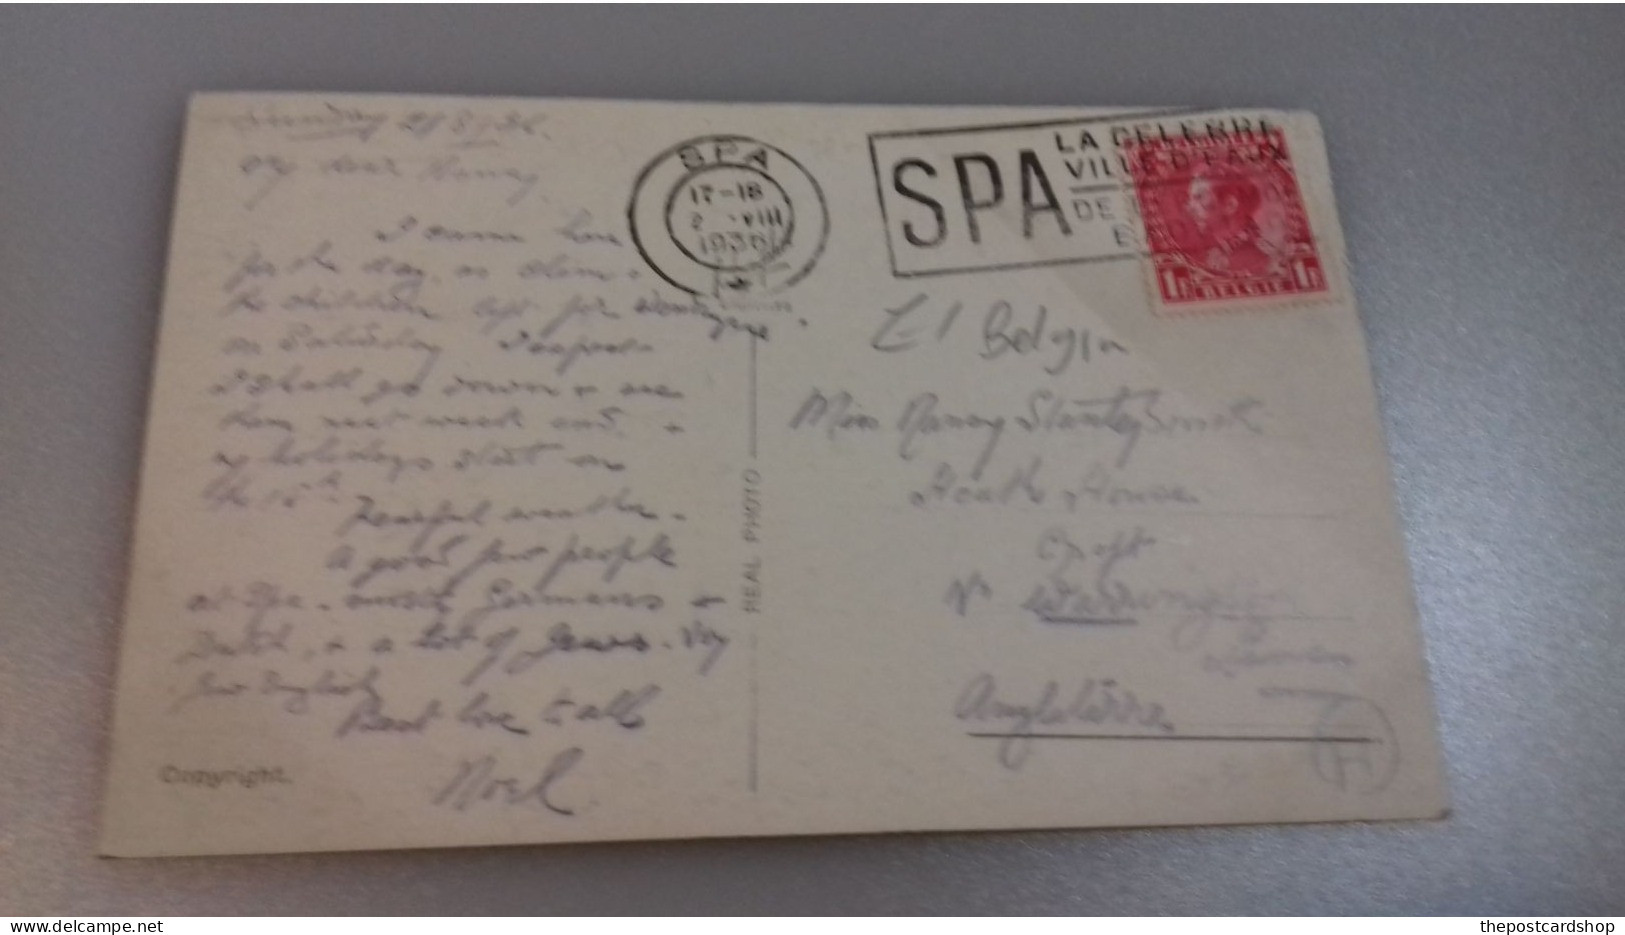 Sunday 2/8/36.
My dear Nancy.
I came here
for the day, as
the children left for
on Saturday I
I shall go down & see
them next week end. &
my holidays start on
the 15th.
weather.
A good few people
at Spa - mostly Germans &
Dutch, & a lot of Jews. Very
few English
Best love to all
Noel.
Copyright.
REAL PHOTO
SPA
17-18
2 VIII
1936
SPA
LA CELEBRE
VILLE D'EAUX
DE
1F BELGIE 1F
£1 Belgian
Miss Nancy Stanley Smith
Heath House
Croft
Nr Warrington
Angleterre
thepostcardshop